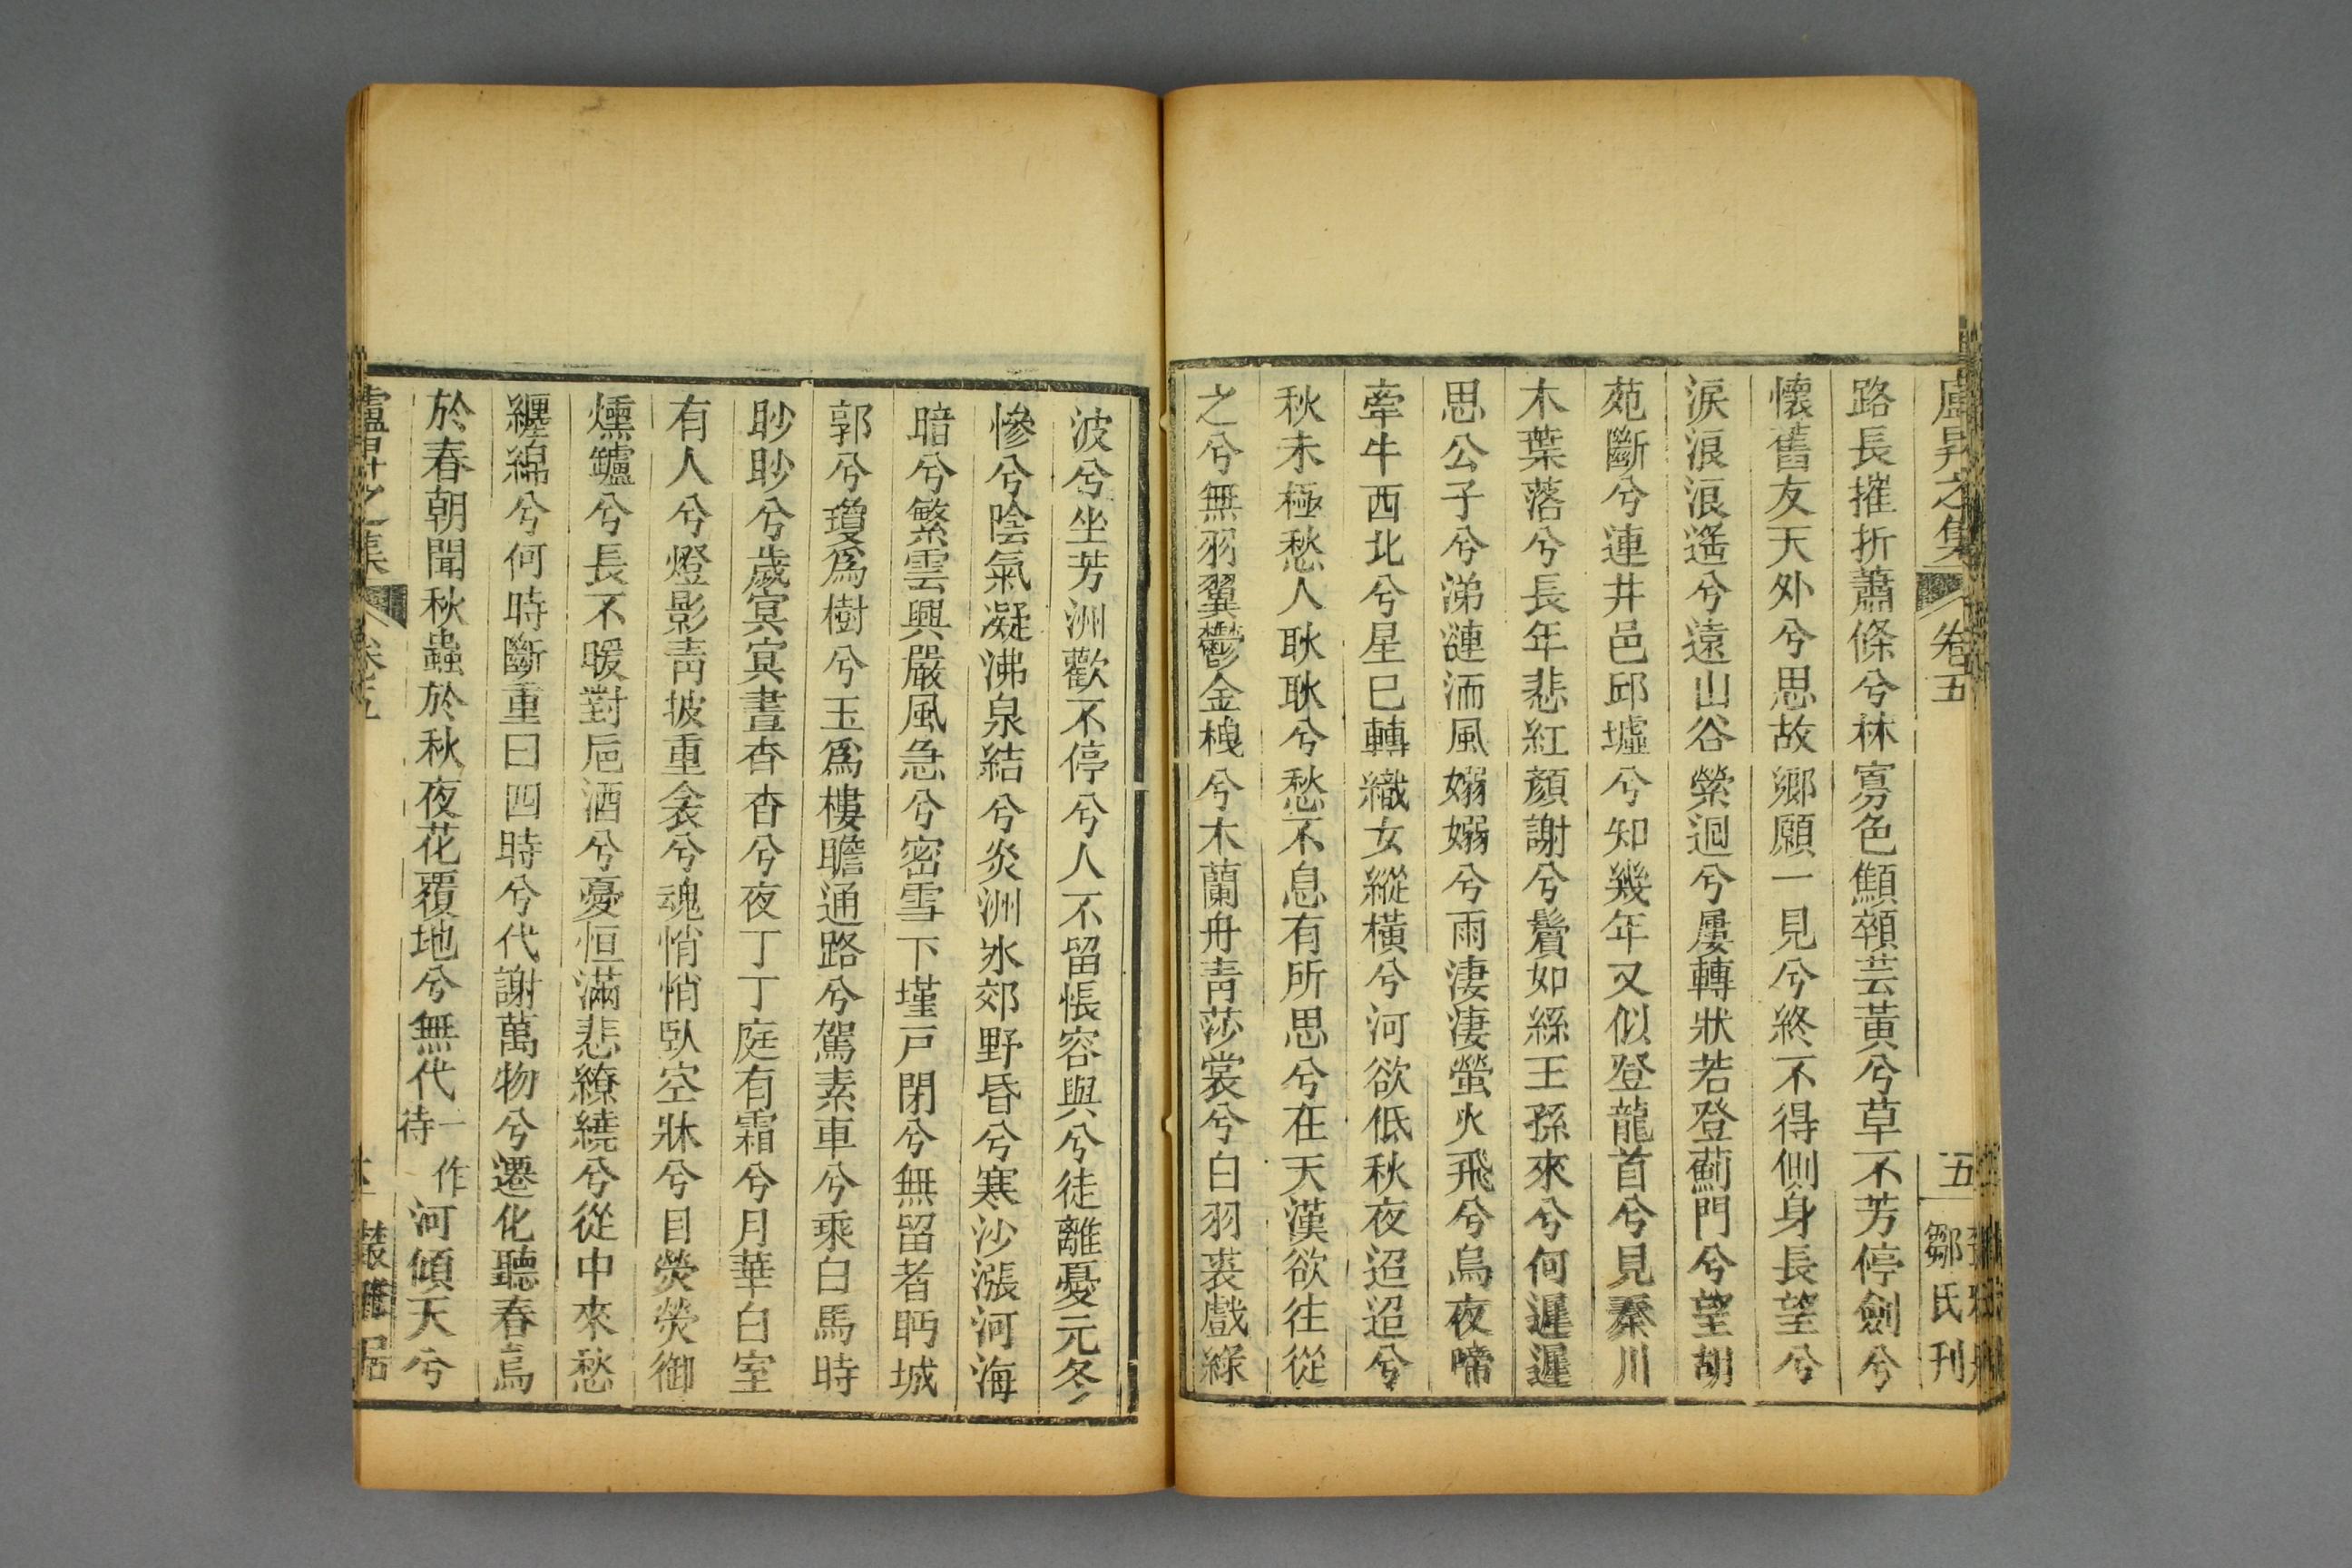 盧昇之集 卷五 五 鄒氏刊
路長摧折蕭條兮林寡色顦顇芸黃兮草不芳停劍兮
懷舊友天外兮思故鄉願一見兮終不得側身長望兮
淚浪浪遙兮遠山谷縈迴兮屢轉狀若登薊門兮望胡
苑斷兮連井邑邱墟兮知幾年又似登龍首兮見秦川
木葉落兮長年悲紅顏謝兮鬢如絲王孫來兮何遲遲
思公子兮涕漣洏風嫋嫋兮雨淒淒螢火飛兮烏夜啼
牽牛西北兮星已轉織女縱橫兮河欲低秋夜迢迢兮
秋未極愁人耿耿兮愁不息有所思兮在天漢欲往從
之兮無羽翼鬱金栧兮木蘭舟青莎裳兮白羽裘戲綠
波兮坐芳洲歡不停兮人不留悵容與兮徒離憂元冬
慘兮陰氣凝沸泉結兮炎洲氷郊野昏兮寒沙漲河海
暗兮繁雲興嚴風急兮密雪下墐戸閉兮無留者眄城
郭兮瓊爲樹兮玉爲樓瞻通路兮駕素車兮乘白馬時
眇眇兮歲冥冥晝杳杳兮夜丁丁庭有霜兮月華白室
有人兮燈影靑披重衾兮魂悄悄臥空牀兮目熒熒御
燻鑪兮長不暖對卮酒兮憂恒滿悲繚繞兮從中來愁
纒綿兮何時斷重曰四時兮代謝萬物兮遷化聽春鳥
於春朝聞秋蟲於秋夜花覆地兮無代一作待河傾天兮
盧昇之集 卷五 叢雅居